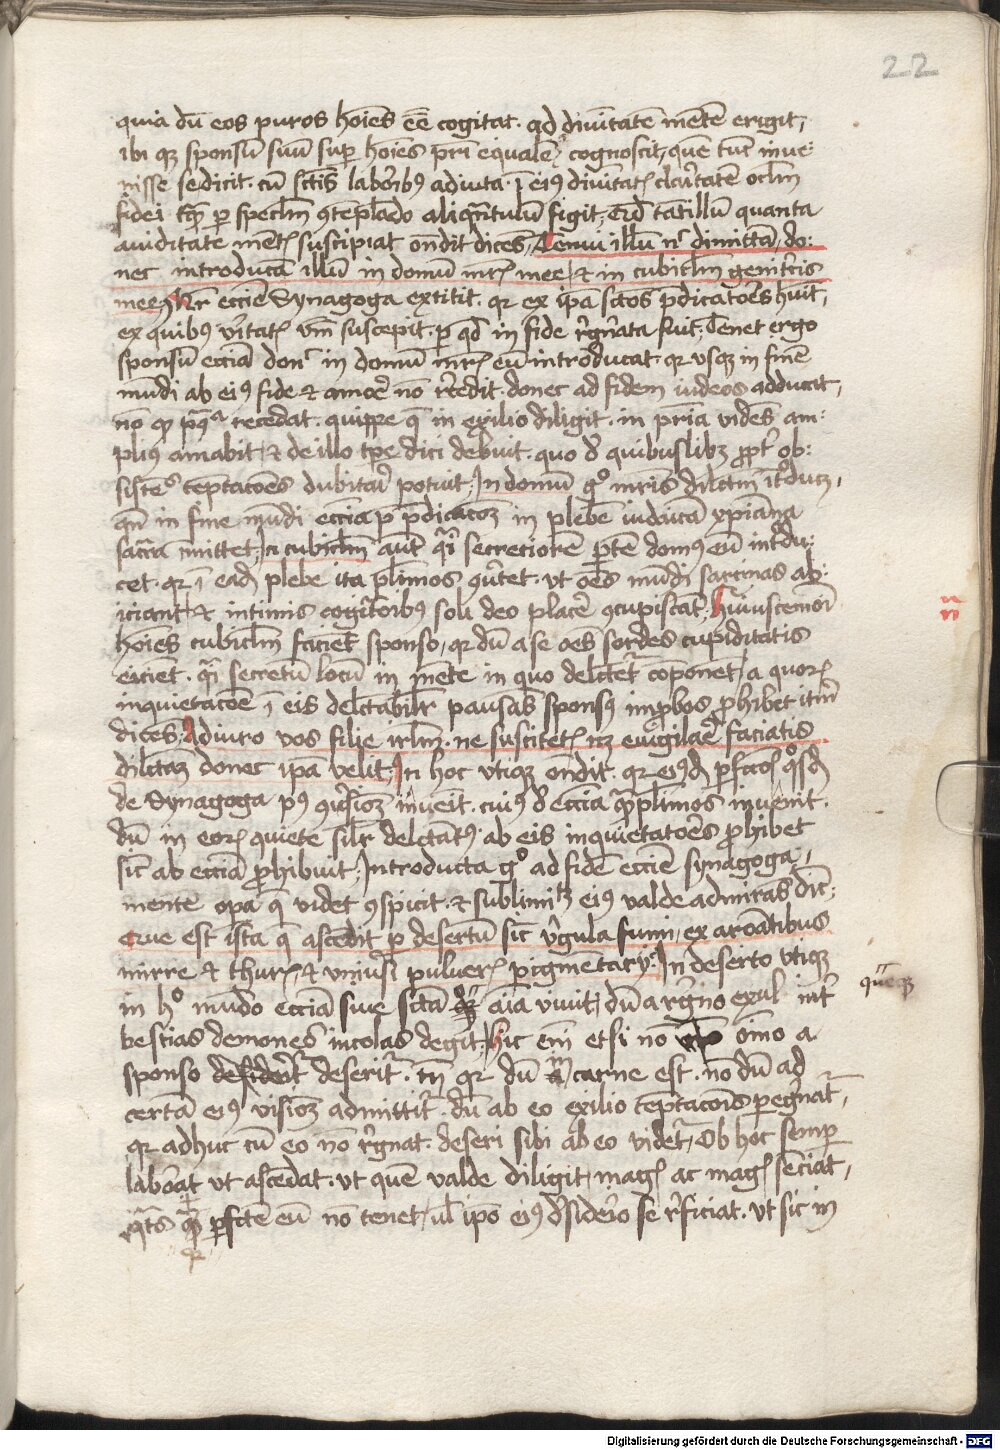 22
quia dū eos puros hoīes eē cogitat. ad divitatē mētē erigit,
ibi qz sponsū suū sup hoīes pri equalē cognoscit, quē tūc inve-
nisse se dicit. cū sctis laborib9 adiuta. ī ei9 divitatis claritatē oclm
fidei tq̄ p speclm 9tēplādo aliq̄ntulū figit, Qd tātillū quanta
aviditate mētis suscipiat ondit dicēs, Tenui illū n dimittā, do-
nec introducā illū in domū mris mee, & in cubiclm genitcis
mee, Mr eccīe Synagoga extitit. qr ex ipa sctos p̄dicatoēs huit,
ex quib9 vitatis vm suscepit. p qd in fide rgn̄ata fuit, Tenet ergo
sponsū eccīa don in domū mris eū introducat. qr vsqz in finē
mūdi ab ei9 fide & amoē nō rcedit. donec ad fidem iudeos adducit,
nō qz pq̄ recedat. quippe q̄ in exilio diligit. in pria vidēs am-
pli9 amabit, & de illo tpe dici debuit. quo d quibuslibz ppt ob-
sistētes tēptacoēs dubitari potuit, In domū g° mris dilctm itducz,
qn̄ in fine mūdi eccīa p p̄dicacoz in plebē iudaicā xpiāna
sacra mittet, In cubiclm aut q̄i secretiorē ptē dom9 eū intdu-
cet. qr ī eadē plebe ita plimos 9vtet. vt oēs mūdi sarcinas ab-
iciant, & intimis cogitōib9 soli deo placē 9cupiscāt, Huiuscemōi
hoīes cubiclm faciēt sponso, qr dū a se oēs sordes cupiditatis
eiciēt. q̄i secretū locū in mēte in quo delctetr cōponēt, a quor
inquietacoē ī eis delctabilr pausās spons9 impbos phibet itm
dicēs, Adiuro vos filie irlm. ne suscitetis ncz evigilaē faciatis
dilctaz donec ipa velit, In hoc vtiqz ondit. qr ei9dē pfctos q°sdā
de Synagoga p9 9vsioz invenit. cui9 d eccīa q̄plimos invenit.
dū in eor quiete silr delctat9. ab eis inquietatoēs phibet
sic ab eccīa phibuit, Introducta g° ad fidē eccīe synagoga,
mente opa q̄ videt 9spicit. & sublimitz ei9 valde admirās dic-
Que est ista q̄ ascēdit p desertū sic vrgula fumi, ex aroātibus
mirre & thuris, & vniusi pulveris pigmētarij, In deserto vtiqz
in h° mūdo eccīa sive sctā aīa vivit, dū a rgno exul int
queqz
bestias demones incolas degit, Hic em etsi nō omīo a
sponso deseritr. tn̄ qr dū ī carne est. nō dū ad
certā ei9 visioz admittitr. dū ab eo exilio tēptacoīs pegnatr,
qr adhuc cū eo nō rgnat. deseri sibi ab eo videtr, Ob hoc semp
laborat vt ascēdat. vt quē valde diligit, magis ac magis sēciat,
q̄ts pfctē eū nō tenet, vl ipo ei9 dsideiro se rficiat. vt sic in
Digitalisierung gefördert durch die Deutsche Forschungsgemeinschaft - DFG